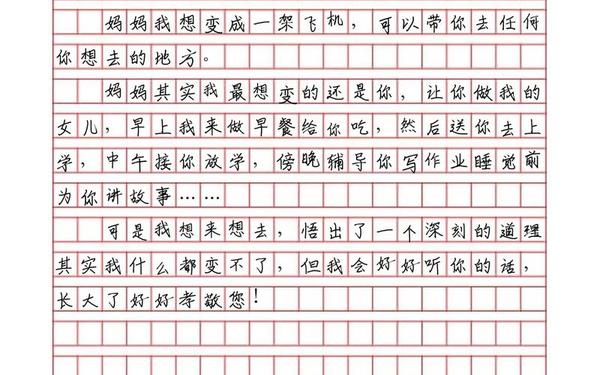 妈妈我想变成一架飞机，可以带你去任何
你想去的地方。
妈妈其实我最想变的还是你，让你做我的
女儿，早上我来做早餐给你吃，然后送你去上
学，中午接你放学，傍晚辅导你写作业睡觉前
为你讲故事……
可是我想来想去，悟出了一个深刻的道理
其实我什么都变不了，但我会好好听你的话，
长大了好好孝敬您！